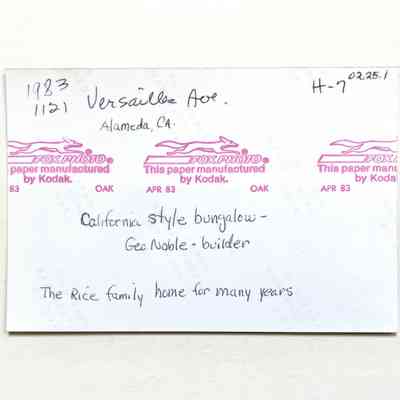 1983
1121 Versailles Ave.
H-7 02.25.1
Alameda, CA.
FOX PHOTO FOX PHOTO FOX PHOTO
paper manufactured This paper manufactured This paper manufactured
by Kodak. by Kodak. by Kodak.
83 OAK APR 83 OAK APR 83
California style bungalow -
Geo Noble - builder
The Rice family home for many years